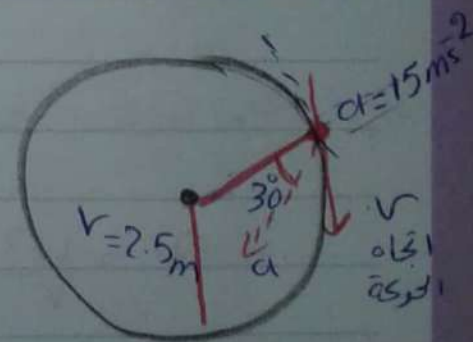 a=15ms⁻²
30°
r=2.5m
a
v
اتجاه
الحركة